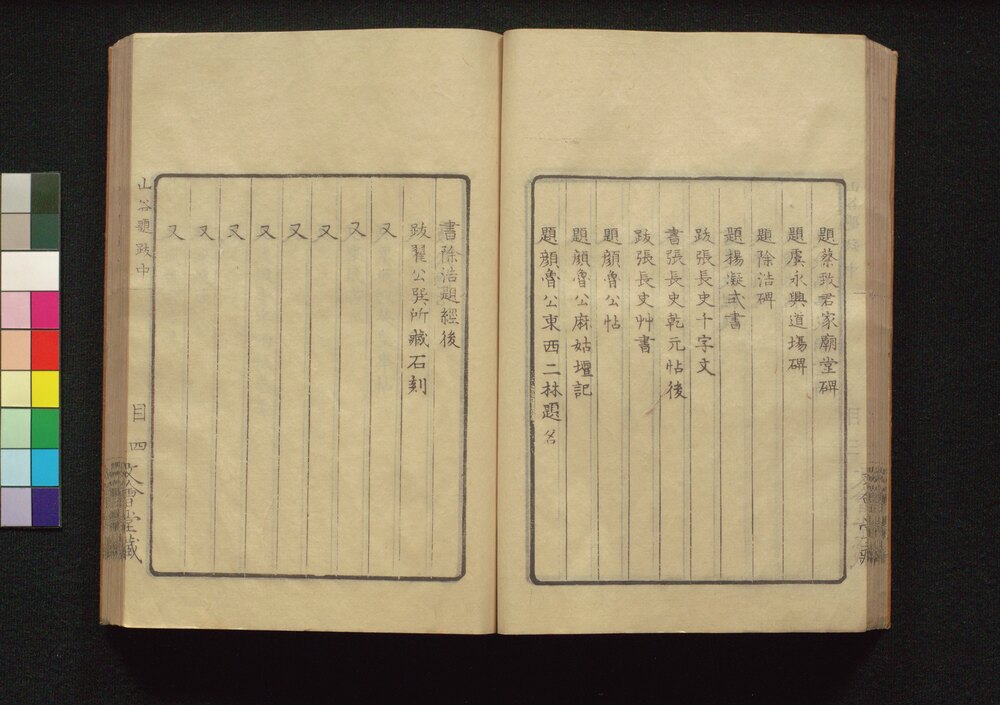 題蔡致君家廟堂碑
題虞永興道場碑
題除浩碑
題揚凝式書
跋張長史十字文
書張長史乾元帖後
跋張長史艸書
題顔魯公帖
題顔魯公麻姑壇記
題顔魯公東西二林題名
書除浩題經後
跋翟公巽所藏石刻
又
又
又
又
又
又
又
又
山谷題跋中
目四
文會堂藏